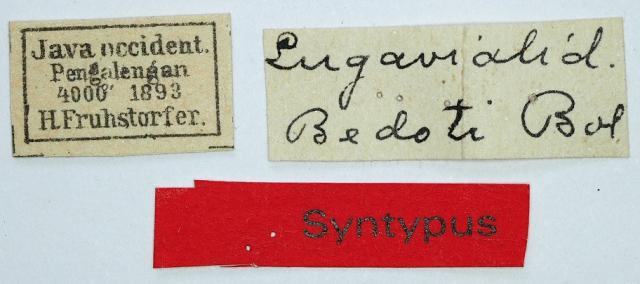 Java occident.
Pengalengan
4000' 1893
H.Fruhstorfer.
Gavialid.
Bedoti Bol
Syntypus